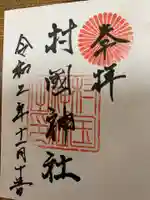 奉拝
村國神社
令和二年十一月十